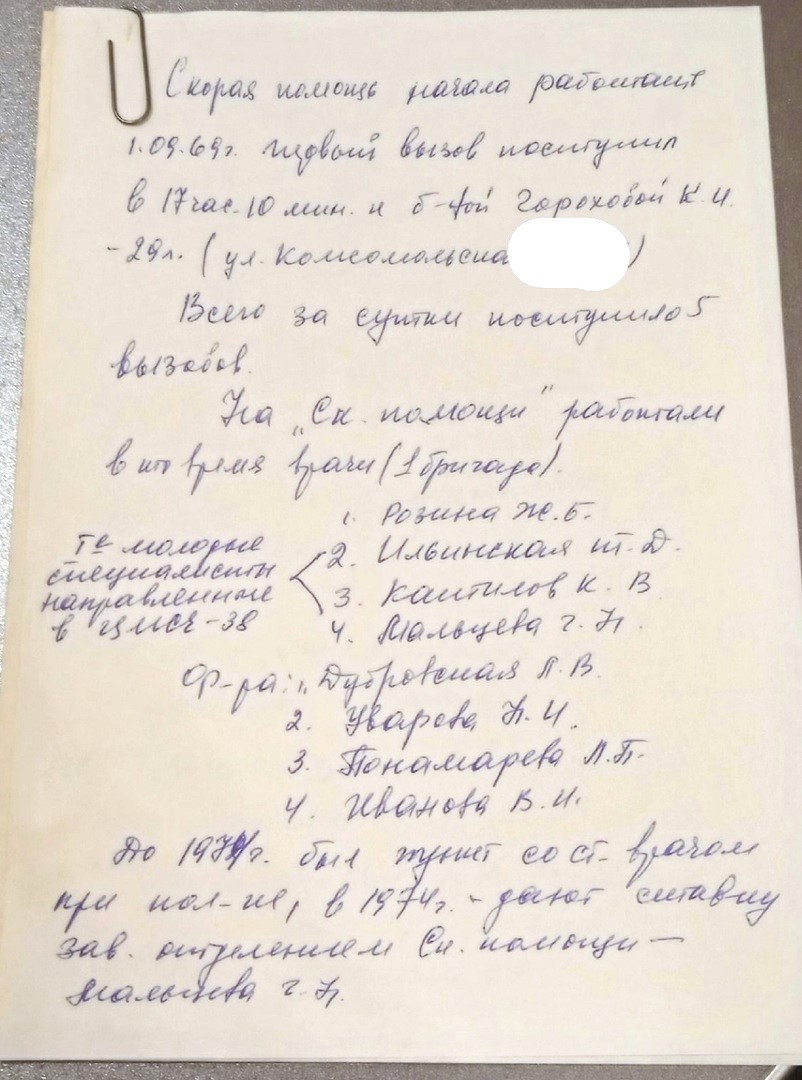 Скорая помощь начала работать
1.09.69г. первый вызов поступил
в 17 час. 10 мин. к б-ной Гороховой К.И.
-29л. (ул. Комсомольская )
Всего за сутки поступило 5
вызовов.
На „Ск. помощи" работали
в то время врачи (1 бригада).
1. Розина Ж.Б.
Те молодые
специалисты
направленные
в ЦМСЧ-38
2. Ильинская Т. Д.
3. Каштилов К. В
4. Мальцева Г. Н.
Ф-ра: 1. Дубровская Л.В.
2. Уварова Н.И.
3. Понамарева Л.П.
4. Иванова В.И.
До 1974г. был пункт со ст. врачом
при пол-ке, в 1974г. - дают ставку
зав. отделением Ск. помощи —
Мальцева Г. Н.